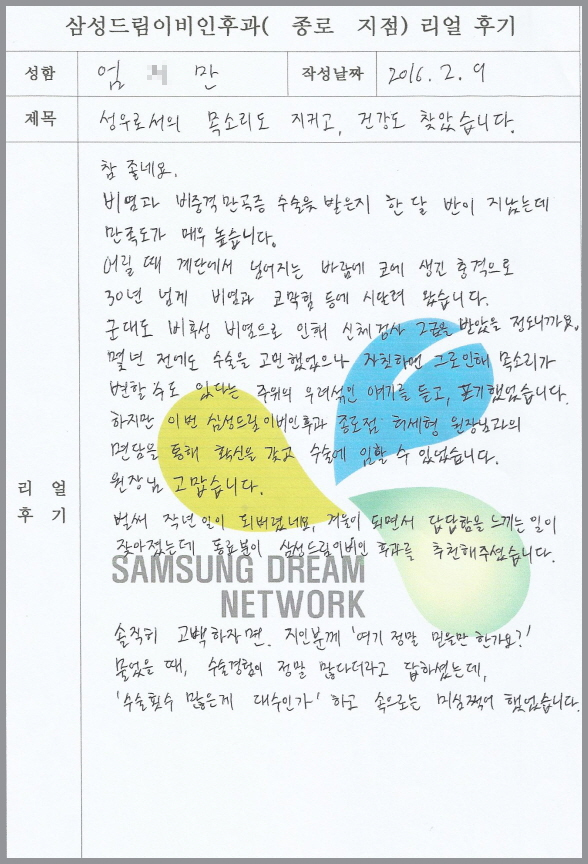 삼성드림이비인후과( 종로 지점) 리얼 후기
성함 엄 만 작성날짜 2016. 2. 9
제목 성우로서의 목소리도 지키고, 건강도 찾았습니다.
참 좋네요.
비염과 비중격만곡증 수술을 받은지 한 달 반이 지났는데
만족도가 매우 높습니다.
어릴 때 계단에서 넘어지는 바람에 코에 생긴 충격으로
30년 넘게 비염과 코막힘 등에 시달려 왔습니다.
군대도 비후성 비염으로 인해 신체검사 그급을 받았을 정도니까요.
몇년 전에도 수술을 고민했었으나 자칫하면 그로인해 목소리가
변할 수도 있다는 주위의 우려섞인 얘기를 듣고, 포기했었습니다.
하지만 이번 삼성드림이비인후과 종로점 허세형 원장님과의
면담을 통해 확신을 갖고 수술에 임할 수 있었습니다.
원장님 고맙습니다.
리 얼
후 기
벌써 작년일이 되버렸네요, 겨울이 되면서 답답함을 느끼는 일이
잦아졌는데 동료분이 삼성드림이비인후과를 추천해주셨습니다.
SAMSUNG DREAM
NETWORK
솔직히 고백하자면. 지인분께 '여기 정말 믿을만 한가요?'
물었을 때, 수술경험이 정말 많다더라고 답하셨는데,
'수술횟수 많은게 대수인가' 하고 속으로는 미심쩍어 했었습니다.